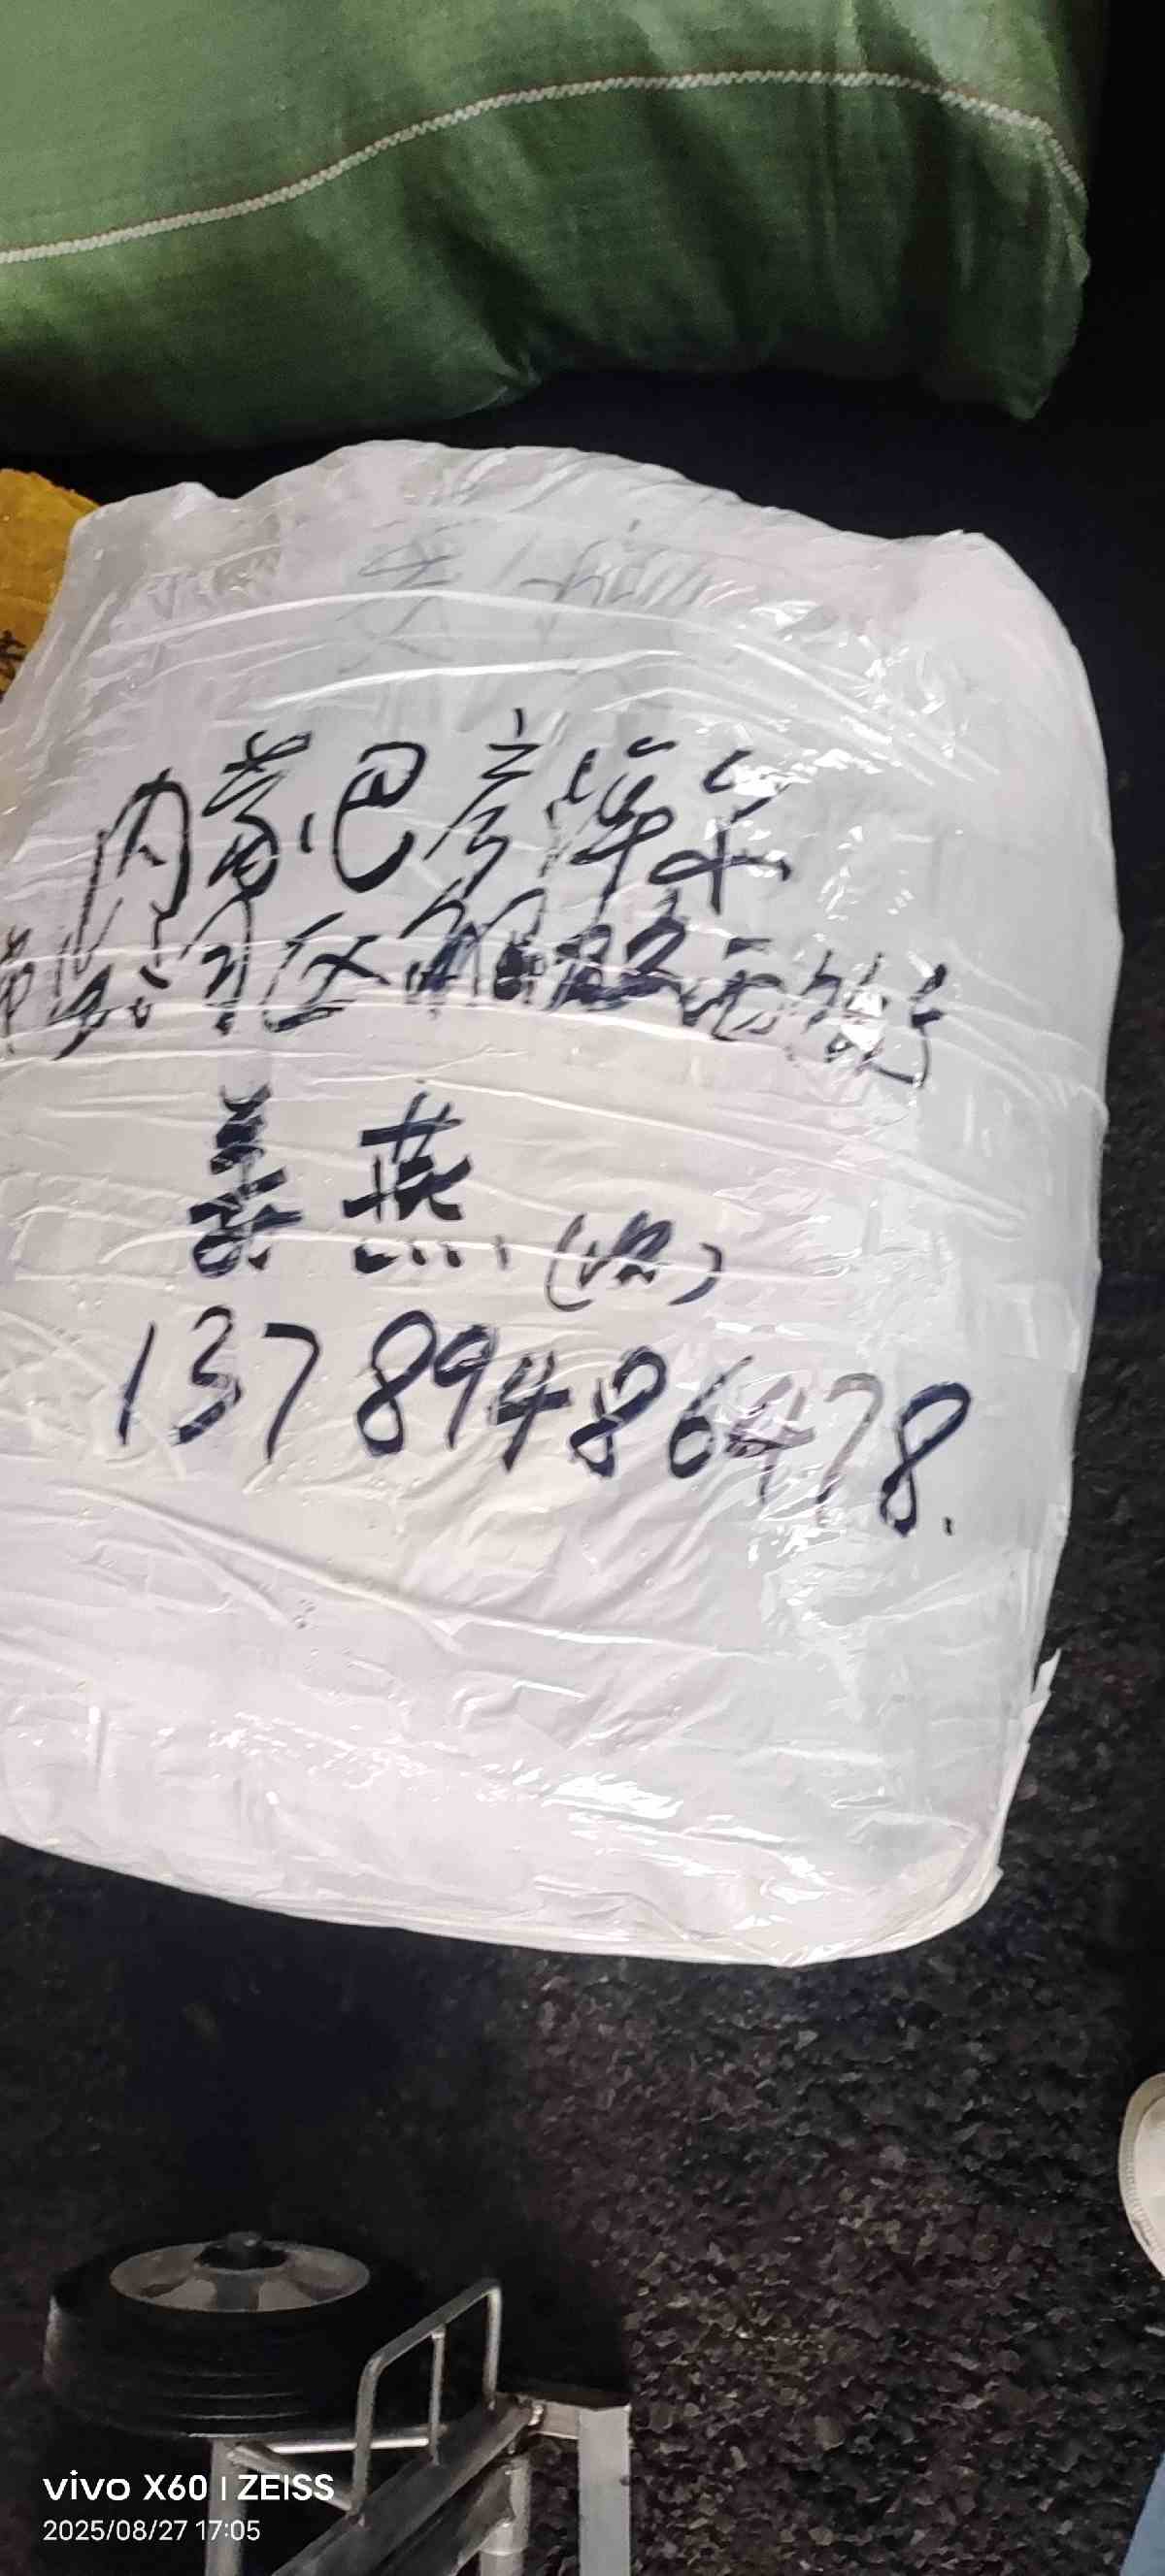 内蒙巴彦淖尔
临河区解放
姜燕(收)
13789486478.
vivo X60 | ZEISS
2025/08/27 17:05